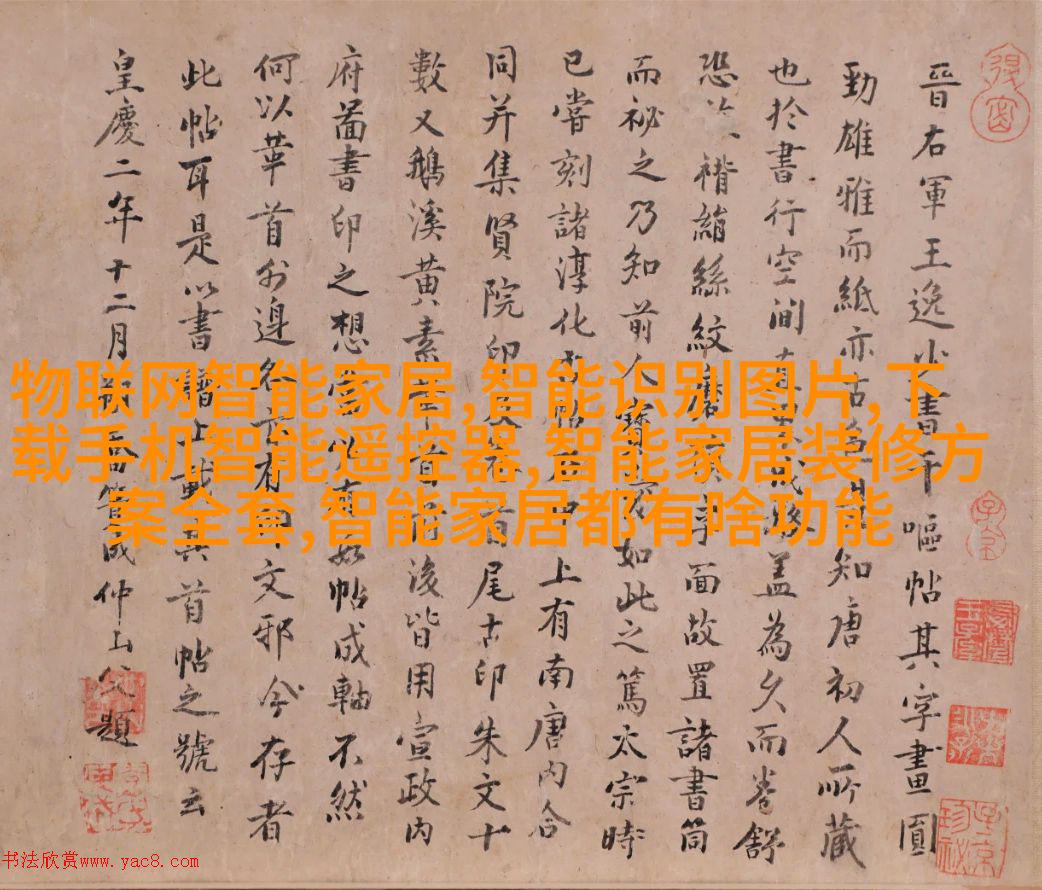 晉右軍王逸少書平嘔帖其字畫圓
勁雄雅而紙亦古知唐初人所藏
也於書行空間蓋為久而卷舒
恐褙絹絲紋磨字面故置諸書筒
而祕之乃知前人寶如此之篤太宗時
已嘗刻諸淳化上有南唐內合
同并集賢院印首尾古印朱文十
數又鵝溪黃素後皆用宣政內
府圖書印之想當帖成軸不然
何以華首外邊名文邪今存者
此帖耳是以書譜止載其首帖之號云
皇慶二年十二月成仲山父題
物联网智能家居,智能识别图片,下
载手机智能遥控器,智能家居装修方
案全套,智能家居都有啥功能
书法欣赏www.yac8.com